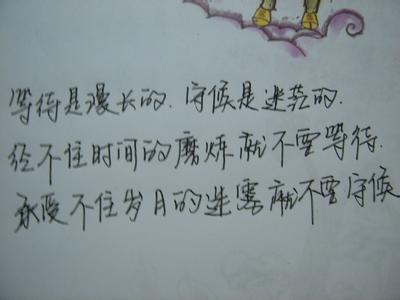 等待是漫长的.守候是迷茫的.
经不住时间的磨炼就不要等待.
承受不住岁月的迷雾就不要守候